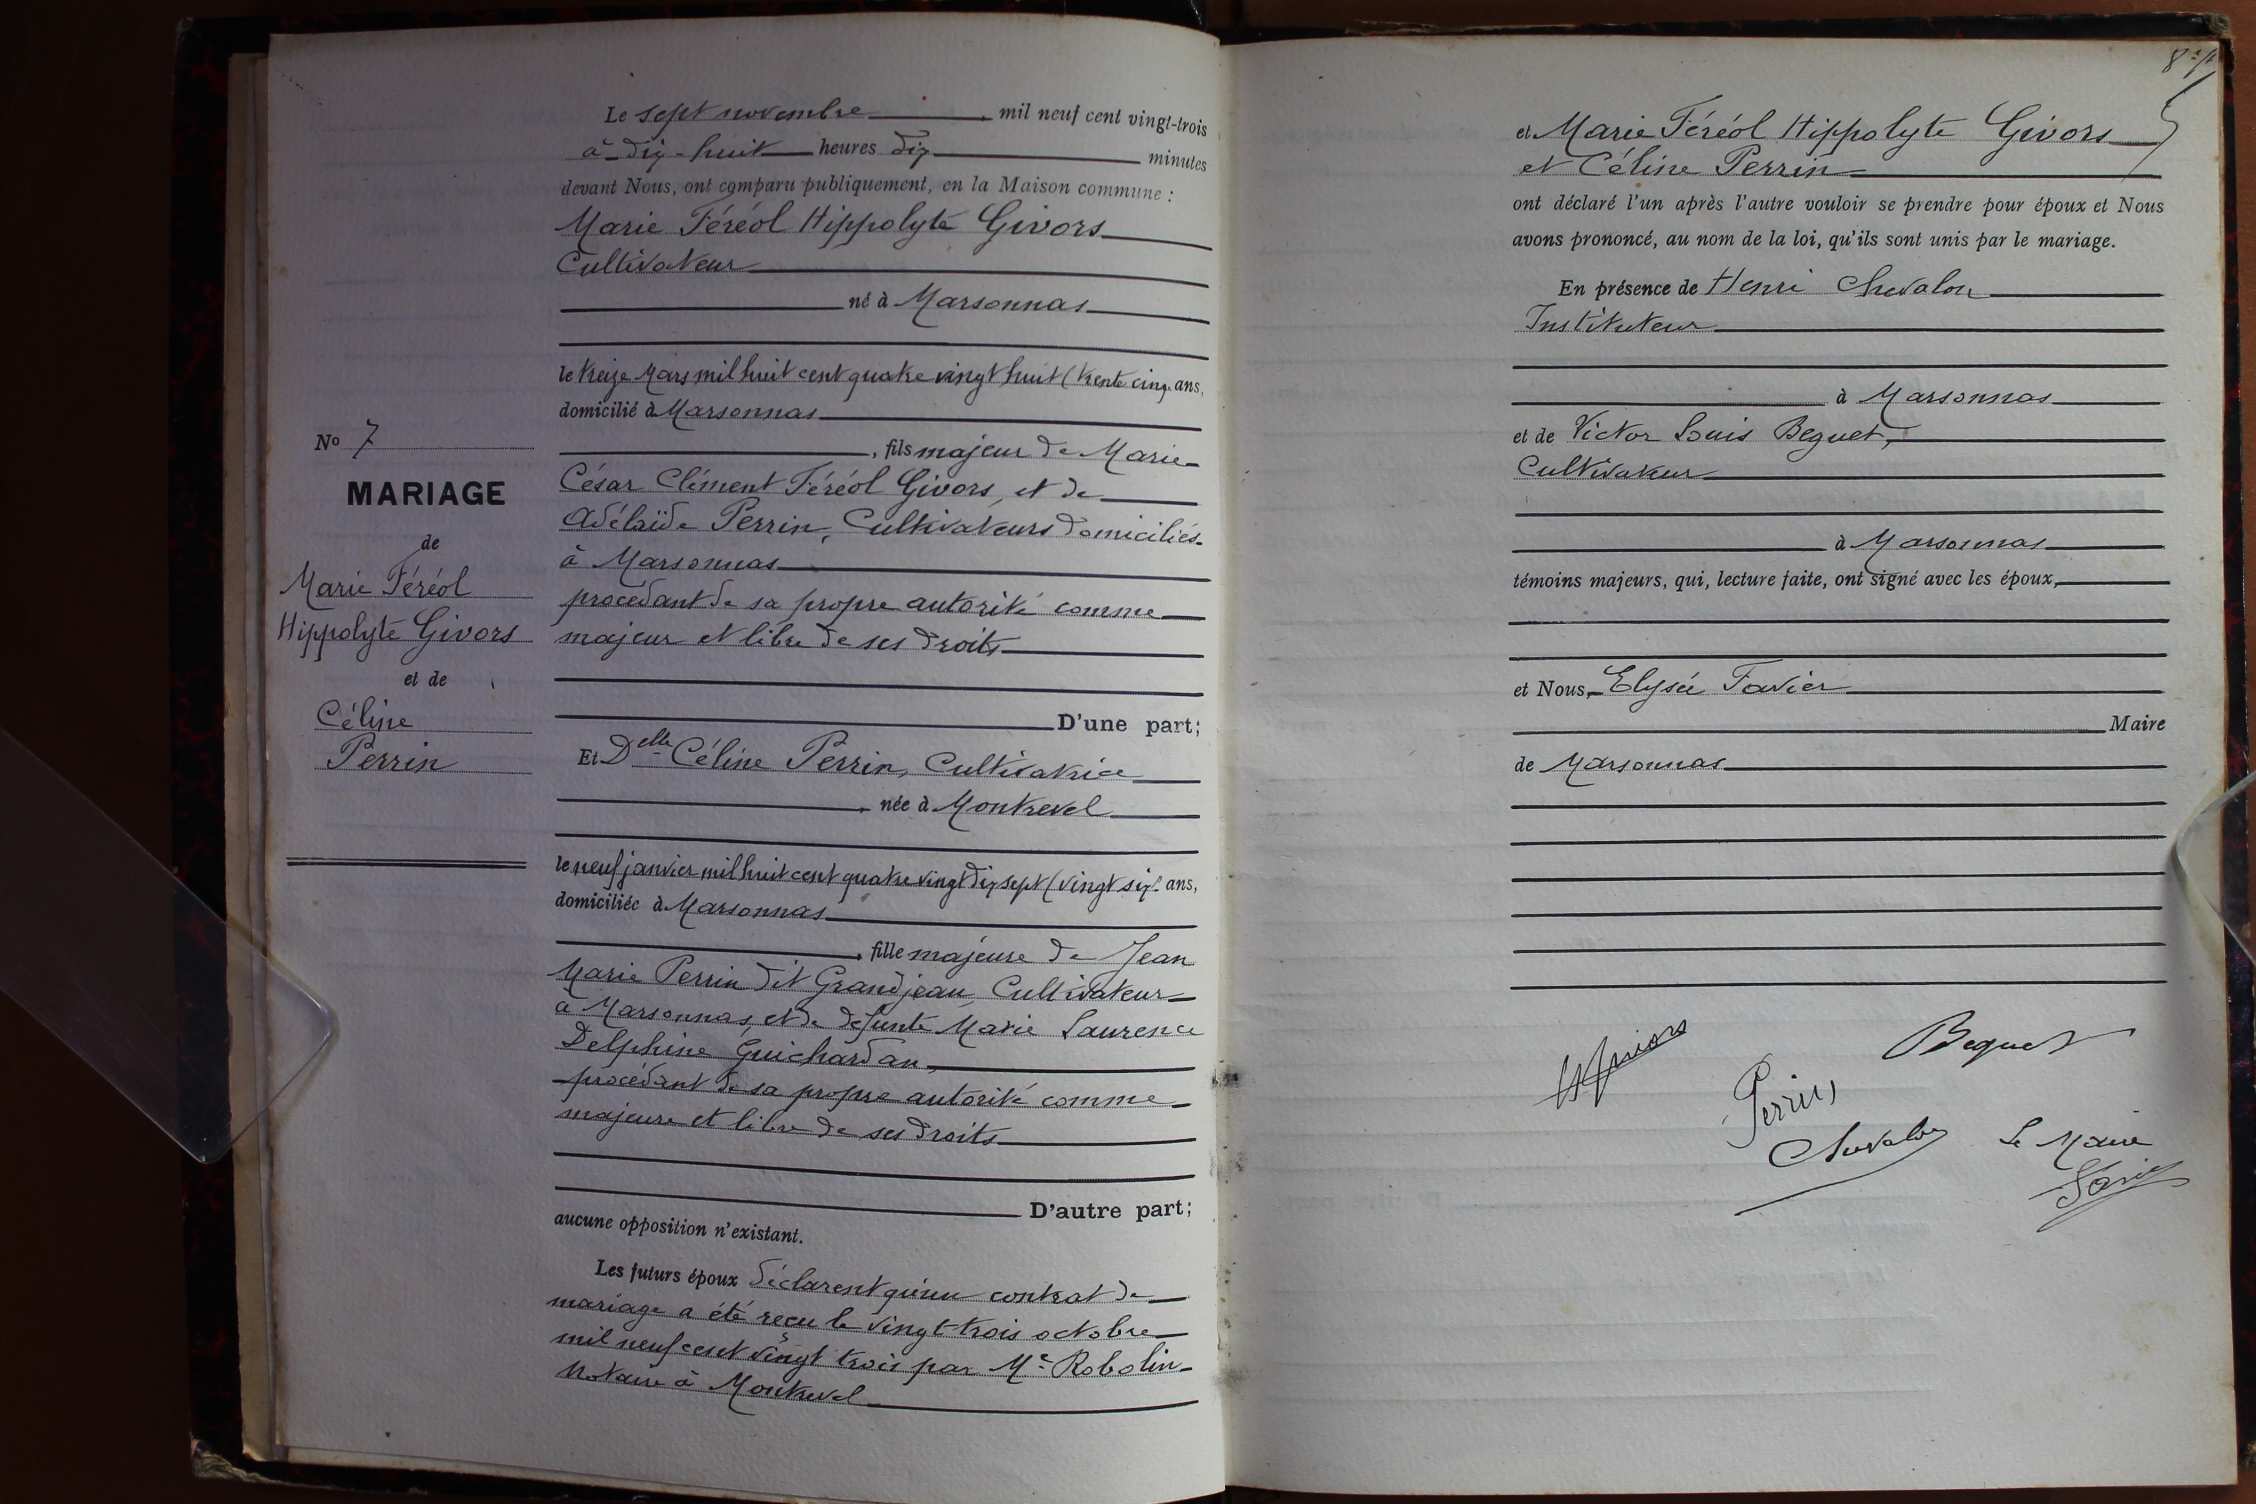 Le sept novembre mil neuf cent vingt-trois
à dix-huit heures dix minutes
devant Nous, ont comparu publiquement, en la Maison commune :
Marie Féréol Hippolyte Givors
Cultivateur
né à Marsonnas
le treize Mars mil huit cent quatre vingt huit (trente cinq ans,
domicilié à Marsonnas
, fils majeur de Marie
César Clément Féréol Givors, et de
Adélaïde Perrin, Cultivateurs domiciliés
à Marsonnas
procédant de sa propre autorité comme
majeur et libre de ses droits
D'une part;
Et Delle Céline Perrin, Cultivatrice
, née à Montrevel
le neuf janvier mil huit cent quatre vingt dix sept (vingt six ans,
domiciliée à Marsonnas
, fille majeure de Jean
Marie Perrin dit Grandjean, Cultivateur
à Marsonnas, et de defunte Marie Laurence
Delphine Guichardan,
procédant de sa propre autorité comme
majeure et libre de ses droits
D'autre part;
aucune opposition n'existant.
Les futurs époux déclarent qu'un contrat de
mariage a été reçu le vingt-trois octobre
mil neuf cent vingt trois par Me Robolin
Notaire à Montrevel
No 7
MARIAGE
de
Marie Féréol
Hippolyte Givors
et de
Céline
Perrin
et Marie Féréol Hippolyte Givors
et Céline Perrin
ont déclaré l'un après l'autre vouloir se prendre pour époux et Nous
avons prononcé, au nom de la loi, qu'ils sont unis par le mariage.
En présence de Henri Chevalon
Instituteur
à Marsonnas
et de Victor Louis Beguet,
Cultivateur
à Marsonnas
témoins majeurs, qui, lecture faite, ont signé avec les époux,
et Nous, Elysée Favier
Maire
de Marsonnas
Beguet
Perrin
Chevalon
Le Maire